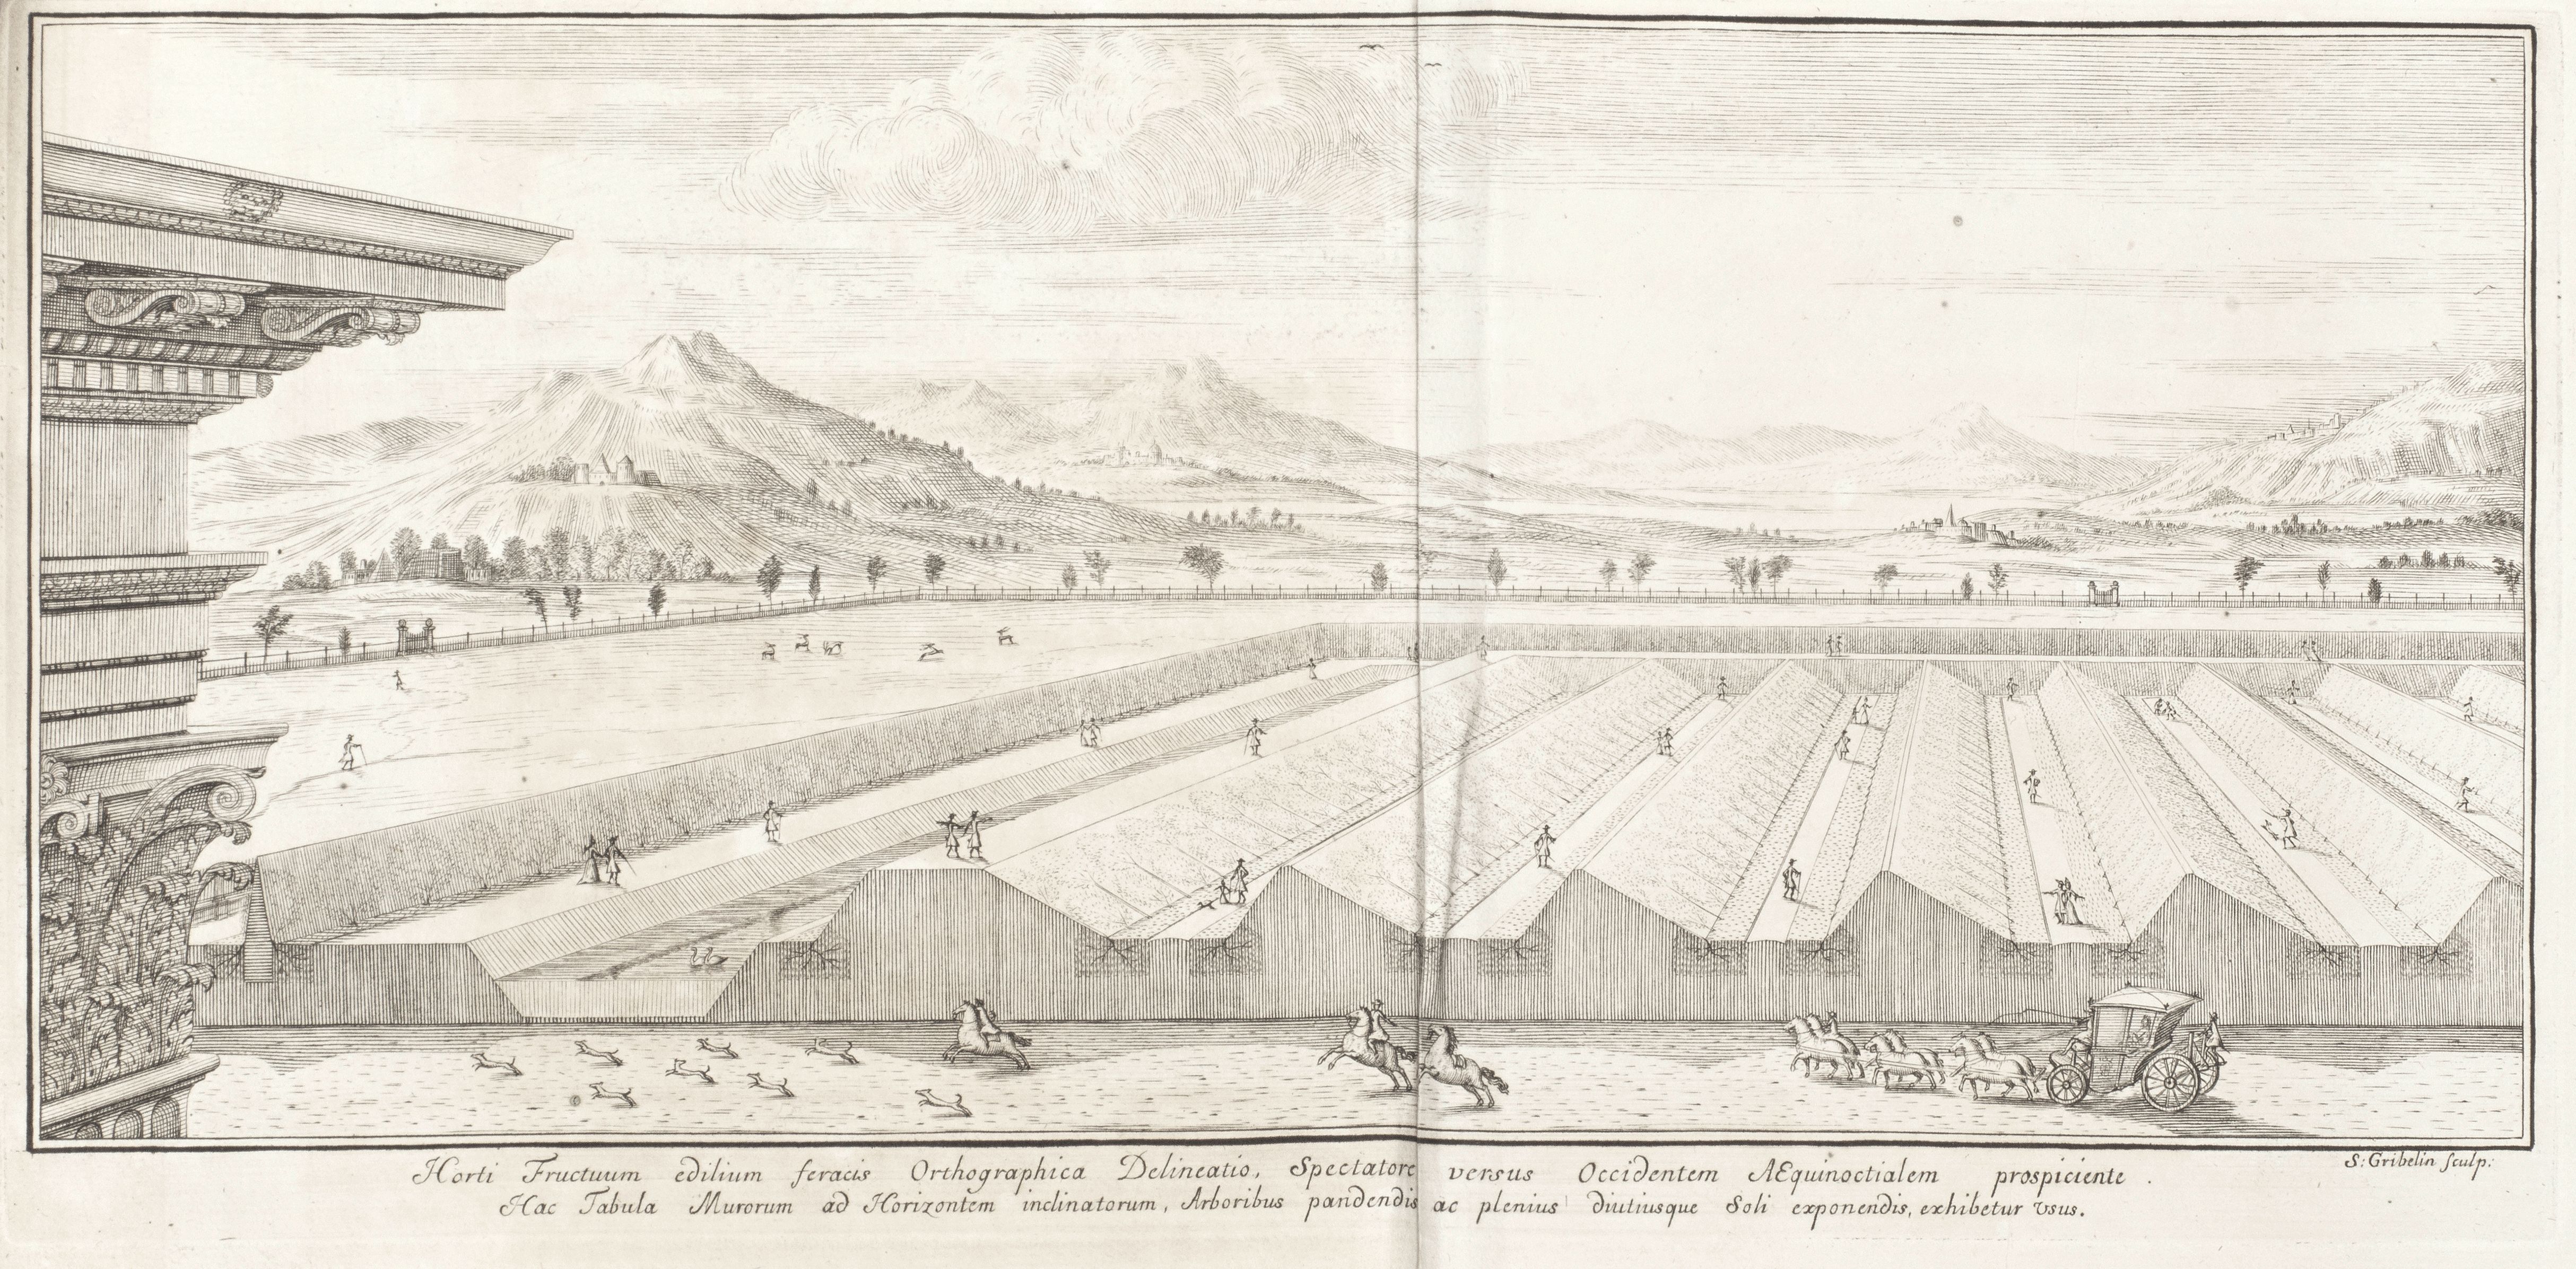 Horti Fructuum edilium feracis Orthographica Delineatio, Spectatore versus Occidentem AEquinoctialem prospiciente.
S: Gribelin sculp:
Hac Tabula Murorum ad Horizontem inclinatorum, Arboribus pandendis ac plenius diutiusque Soli exponendis, exhibetur vsus.